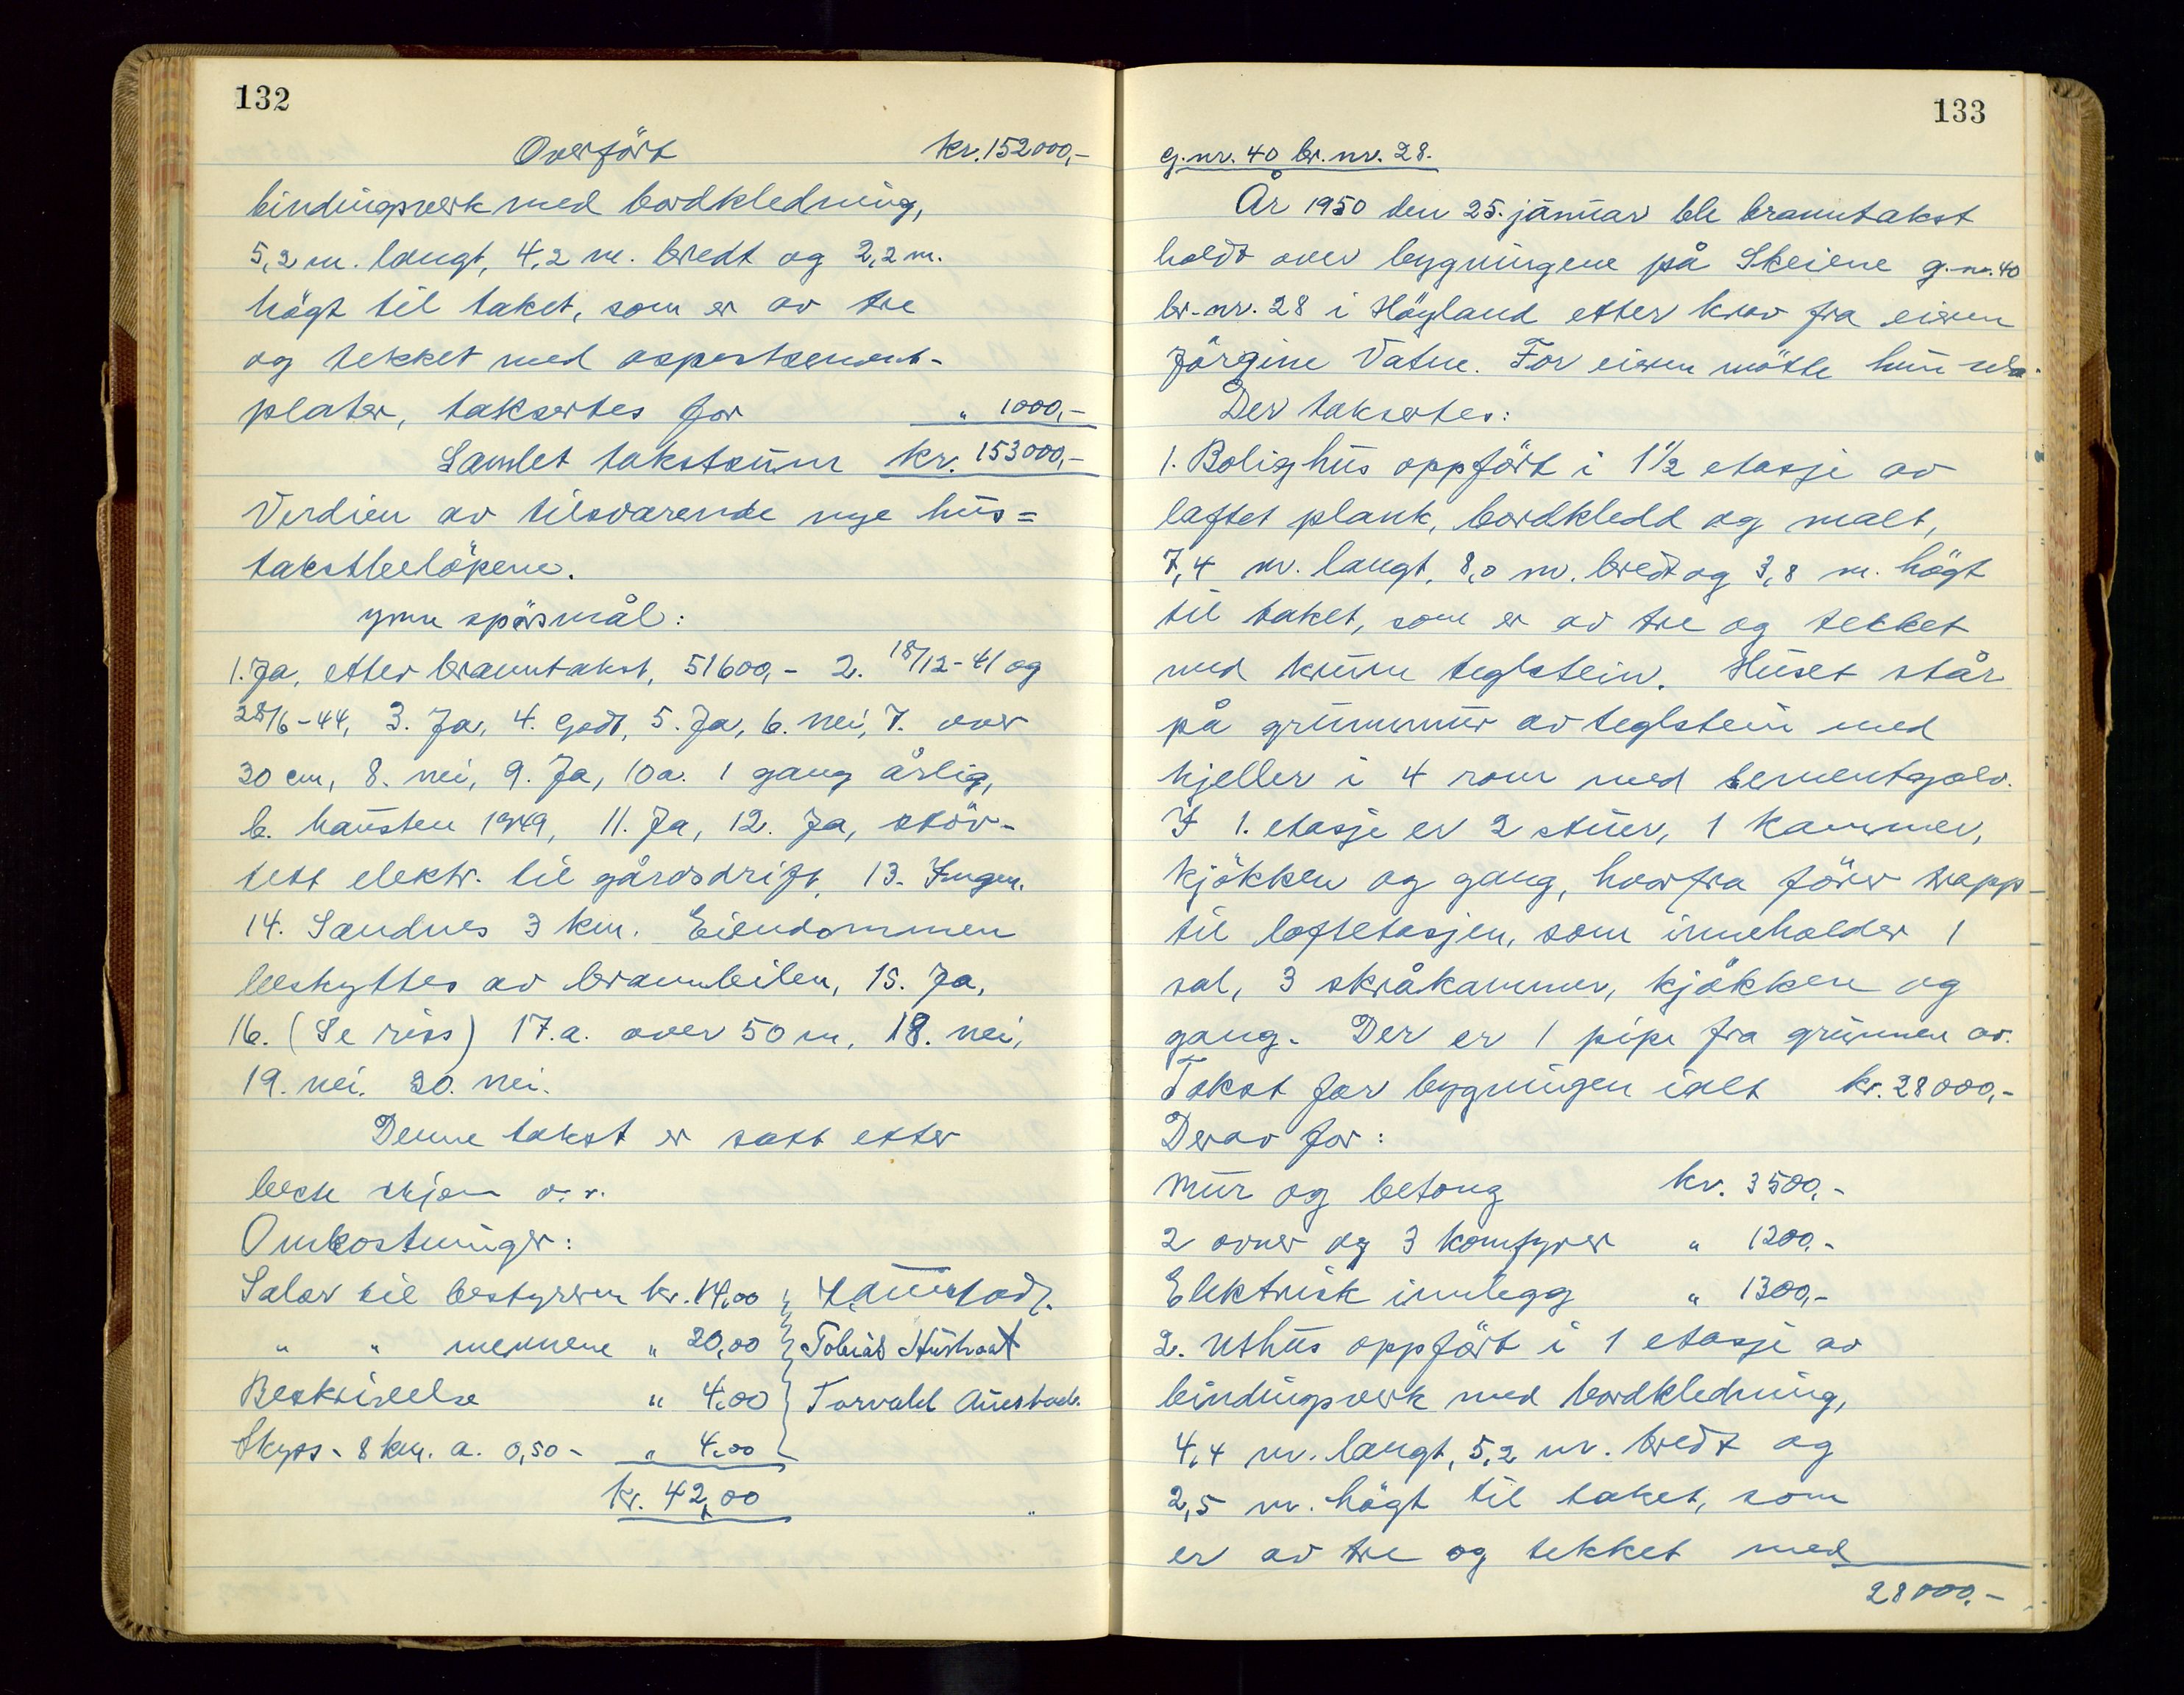 132
Overført kr. 152000,-
bindingsverk med bordkledning,
5,2 m. langt, 4,2 m. bredt og 2,2 m.
högt til taket, som er av tre
og tekket med aspestsement-
plater, taksertes for " 1000,-
Samlet takstsum kr. 153000,-
Verdien av tilsvarende nye hus =
takstbelöpene.
Ymse spörsmål:
1. Ja, etter branntakst, 51600,- 2. 18/12-41 og
28/6-44, 3. Ja, 4. Godt, 5. Ja, 6. nei, 7. over
30 cm, 8. nei, 9. Ja, 10a. 1 gang årlig,
b. hausten 1949, 11. Ja, 12. Ja, støv-
tett elektr. til gårdsdrift, 13. Ingen.
14. Sandnes 3 km. Eiendommen
beskyttes av brannbilen, 15. Ja,
16. (Se riss) 17.a. over 50 m, 18. nei,
19. nei. 20. nei.
Denne takst er satt etter
beste skjøn o. v.
Omkostninger:
Salær til bestyreren kr. 14,00
" " mennene " 20,00 Tobias Hustvat
Beskrivelse " 4,00 Torvald Austvoll.
Skyss - 8 km. a. 0,50 - " 4,00
kr. 42,00
133
g.nr. 40 br. nr. 28.
År 1950 den 25. januar ble branntakst
holdt over bygningene på Skeiene g.-nr. 40
br.-nr. 28 i Höyland etter krav fra eieren
Jörgine Vatne. For eieren mötte hun selv.
Der taksertes:
1. Bolighus oppfört i 1½ etasje av
laftet plank, bordkledd og malt,
7,4 m. langt, 8,0 m. bredt og 3,8 m. högt
til taket, som er av tre og tekket
med krum teglstein. Huset står
på grunnmur av teglstein med
kjeller i 4 rom med sementgolv.
I 1. etasje er 2 stuer, 1 kammer,
kjökken og gang, hvorfra förer trapp
til loftetasjen, som inneholder 1
sal, 3 skråkammer, kjökken og
gang. Der er 1 pipe fra grunnen av.
Takst for bygningen ialt kr. 28000,-
Derav for:
Mur og betong kr. 3500,-
2 ovner og 3 komfyrer " 1200,-
Elektrisk innlegg " 1300,-
2. Uthus oppfört i 1 etasje av
bindingsverk med bordkledning,
4,4 m. langt, 5,2 m. bredt og
2,5 m. högt til taket, som
er av tre og tekket med
28000,-